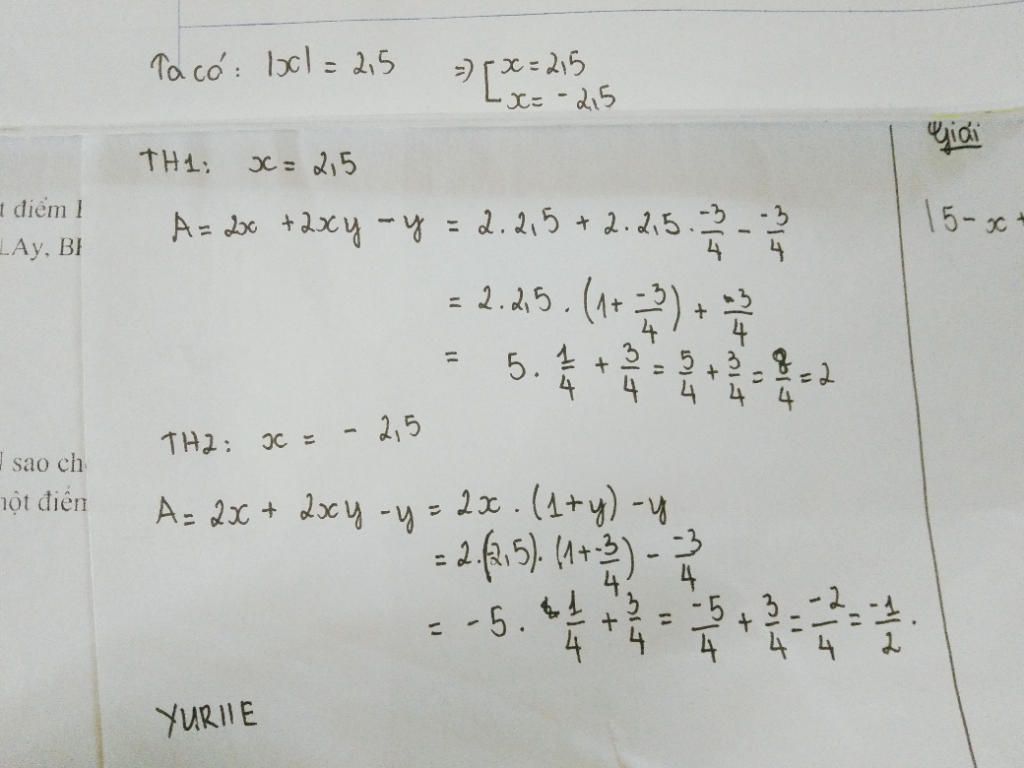 Ta có: |x| = 2,5 => [ x = 2,5
x = - 2,5
Giải
TH1: x = 2,5
t điểm
A = 2x + 2xy - y = 2.2,5 + 2.2,5 . -3/4 - -3/4
|5 - x +
LAy, BI
= 2.2,5 . (1 + -3/4) + -3/4
= 5 . 1/4 + 3/4 = 5/4 + 3/4 = 8/4 = 2
TH2: x = - 2,5
sao ch
một điểm
A = 2x + 2xy - y = 2x . (1+y) - y
= 2.(-2,5). (1 + -3/4) - -3/4
= -5 . 1/4 + 3/4 = -5/4 + 3/4 = -2/4 = -1/2 .
YURIIE